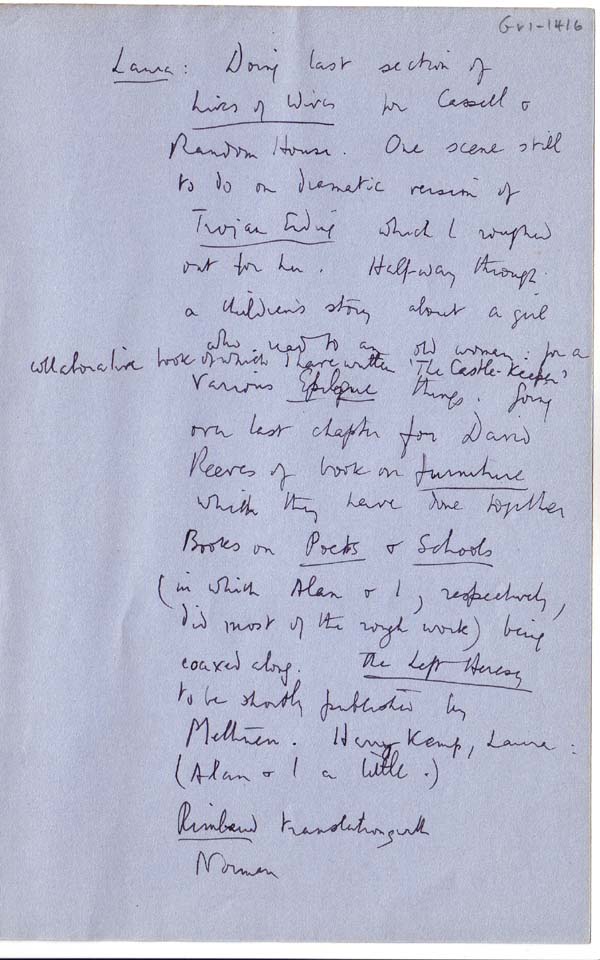 Gv1-1416
Laura: Doing last section of
Lives of Wives for Cassell &
Random House. One scene still
to do on dramatic version of
Trojan Ending which I roughed
out for her. Half-way through
a children's story about a girl
who used to an old woman: for a
collaborative book of which I have written 'The Castle-Keeper'
Various Epilogue things. Going
over last chapter for David
Reeves of book on furniture
which they have done together
Books on Poets & Schools
(in which Alan & I, respectively,
did most of the rough work) being
coaxed along. The Left Heresy
to be shortly published by
Methuen. Harry Kemp, Laura:
(Alan & I a little.)
Rimbaud translation with
Norman